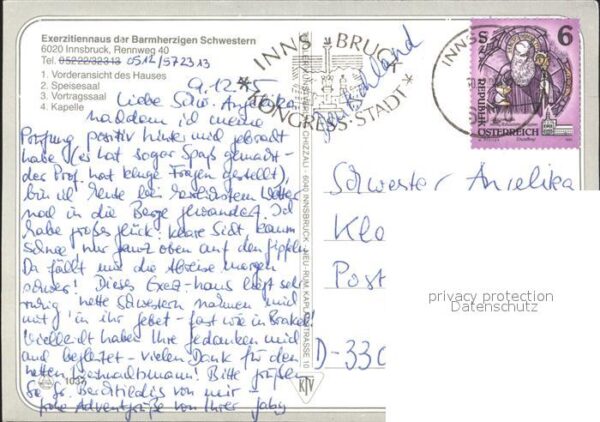 Exerzitienhaus der Barmherzigen Schwestern
6020 Innsbruck, Rennweg 40
Tel. 05222/32313 0512/572313
1. Vorderansicht des Hauses
2. Speisesaal
3. Vortragssaal
4. Kapelle
9.12.
Liebe Schw. Angelika!
Nachdem ich meine
Prüfung positiv hinter mich gebracht
habe (es hat sogar Spaß gemacht -
der Prof. hat kluge Fragen gestellt),
bin ich heute bei Wetter
noch in die Berge gewandert. Ich
habe großes Glück: klare Sicht, kaum
Schnee, nur ganz oben auf den Gipfeln
Da fällt mir die Abreise morgen
schwer! Dieses Exerz-haus liegt sehr
ruhig, nette Schwestern nahmen mich
mit in ihr Gebet - fast wie in Brakel!
Vielleicht haben Ihre Gedanken mich
auch begleitet - vielen Dank für den
netten ! Bitte grüßen
Sie Sr. von mir -
frohe Adventgrüße von Ihrer Gaby
1037
KTV
INNSBRUCK
KONGRESS-STADT
Deutschland
INNS
S 6
REPUBLIK
ÖSTERREICH
Schwester Angelika
Klo
Post
D-330
privacy protection
Datenschutz